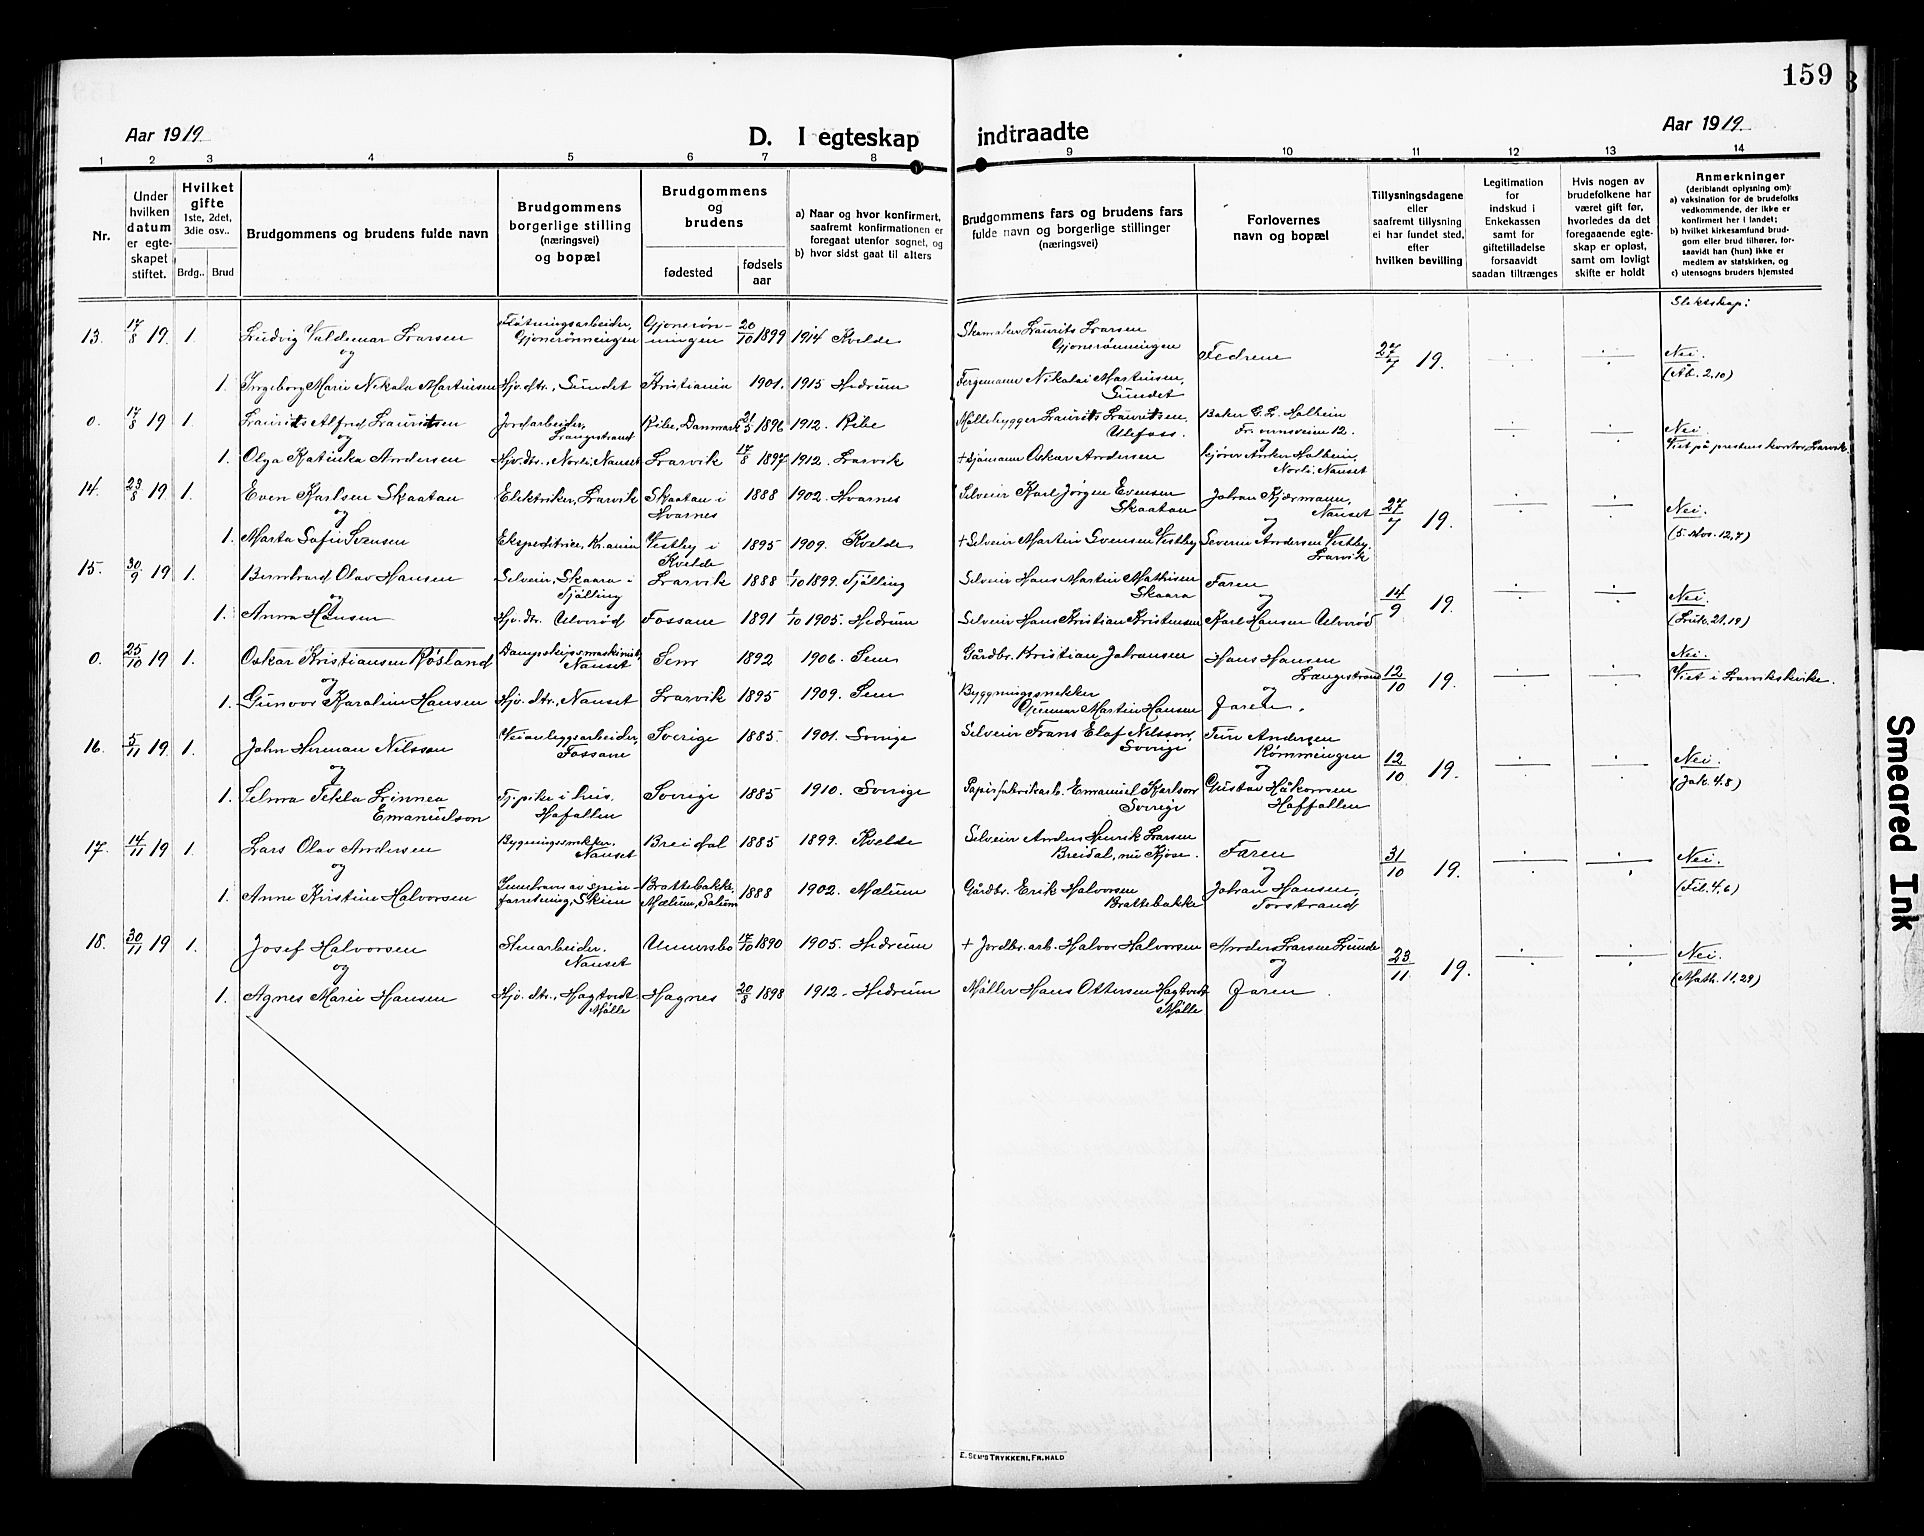 159
Aar 1919.
D. I egteskap indtraadte
Aar 1919.
1 2 3 4 5 6 7 8 9 10 11 12 13 14
Nr.
Under hvilken datum er egteskapet stiftet.
Hvilket gifte 1ste, 2det, 3die osv..
Brdg.. Brud
Brudgommens og brudens fulde navn
Brudgommens borgerlige stilling (næringsvei) og bopæl
Brudgommens og brudens
fødested
fødselsaar
a) Naar og hvor konfirmert, saafremt konfirmationen er foregaat utenfor sognet, og
b) hvor sidst gaat til alters
Brudgommens fars og brudens fars fulde navn og borgerlige stillinger (næringsvei)
Forlovernes navn og bopæl
Tillysningsdagene eller saafremt tillysning ei har fundet sted, efter hvilken bevilling
Legitimation for indskud i Enkekassen samt for giftetilladelse forsaavidt saadan tiltrænges
Hvis nogen av brudefolkene har været gift før, hvorledes da det foregaaende egteskap er opløst, samt om lovligt skifte er holdt
Anmerkninger (deriblandt oplysning om):
a) vaksination for de brudefolks vedkommende, der ikke er konfirmert her i landet;
b) hvilket kirkesamfund brudgom eller brud tilhører, forsaavidt han (hun) ikke er medlem av statskirken, og
c) utensogns bruders hjemsted
Slektskap:
13. 17/8 19. 1. Ludvig Valdemar Larsen Fløtningsarbeider, Gjonerønningen Gjonerønningen 20/10 1899 1914 Kvelde Laurits Larsen Gjonerønningen Fedrene 27/7 19. Nei.
og
1. Ingeborg Marie Nikola Martinsen Hjv. dtr., Sundet Kristiania 1901. 1915 Hedrum Fergemann Nikolai Martinsen, Sundet (Åb. 2,10)
0. 17/8 19 1. Laurits Alfred Lauritsen Jordarbeider, Langestrand Ribe, Danmark 21/5 1896 1912. Ribe Møllebygger Laurits Lauritsen. Ulefoss. Baker C. L. Holheim 12. Nei.
og
1. Olga Katinka Andersen Hjv. dtr., Norli, Nanset Larvik 17/8 1897 1912. Larvik + Sjømann Oskar Andersen Norli, Nanset Viet på prestens kontor, Larvik.
14. 23/8 19 1. Even Karlsen Skaatan Elektriker, Larvik Skaatan i Hvarnes 1888 1902. Hvarnes Selveier Karl Jørgen Evensen Skaatan Johan Kjærmann, Nanset 27/7 19. Nei.
og
1. Marta Sofie Svensen Ekspeditrice, Kr.ania Vestby i Kvelde 1895 1909. Kvelde + Selveier Martin Svensen Vestby Severin Andersen Vestby, Larvik (5. Mos. 12,7)
15. 30/9 19 1. Bernhard Olav Hansen Selveier, Skaara i Tjølling Larvik 1888 1/10 1899. Tjølling Selveier Hans Martin Mathisen Skaara Faren 14/9 19. Nei.
og
1. Anna Hansen Hjv. dtr. Ulverød Fossane 1891 1/10 1905. Hedrum Selveier Hans Kristian Kristensen Karl Hansen Ulverød (Luk. 21,19)
0. 25/10 19 1. Oskar Kristiansen Røsland Dampskipsmaskinist, Nanset Sem 1892 1906. Sem Gårdbr. Kristian Johansen Hans Hansen Langestrand 12/10 19. Nei.
og
1. Gunvor Karoline Hansen Hjv. dtr., Nanset Larvik 1895 1909. Sem Bygningssnekker Gunnar Martin Hansen Faren. Viet i Larvikskirke.
16. 5/11 19 1. John Herman Nilsson Veianleggsarbeider, Fossane Sverige 1885. 1901. Sverige Selveier Frans Elof Nilsson, Sverige Andersen Rømmingen 12/10 19. Nei.
og
1. Selma Tekla Linnea Emanuelson Tj. pike i hus, Hafallen Sverige 1885 1910. Sverige Papirfabrikarb. Emanuel Karlson Sverige Gustav Håkonsen Haffallen (Jak. 4.8)
17. 14/11 19 1. Lars Olav Andersen Bygningssnekker, Nanset Breidal 1885 1899. Kvelde Selveier Anders Henrik Larsen Breidal, nu Kjose. Faren 31/10 19. Nei.
og
1. Anne Kirstine Halvorsen forretning, Skien Brattebakke, Mælum, Solum 1888 1902. Mælum Gårdbr. Erik Halvorsen Brattebakke Johan Hansen, Torstrand (Fil. 4,6)
18. 30/11 19 1. Josef Halvorsen Stenarbeider. Nanset Unnersbo 17/10 1890 1905. Hedrum + Jordbr. arb. Halvor Halvorsen Anders Larsen Lunde 23/11 19. Nei.
og
1. Agnes Marie Hansen Hjv. dtr., Hagtvedt Mølle Hagnes 20/8 1898 1912. Hedrum Møller Hans Ottersen Hagtvedt Mølle Faren. (Math. 11,28)
E. SEM'S TRYKKERI, FR.HALD
Smeared Ink